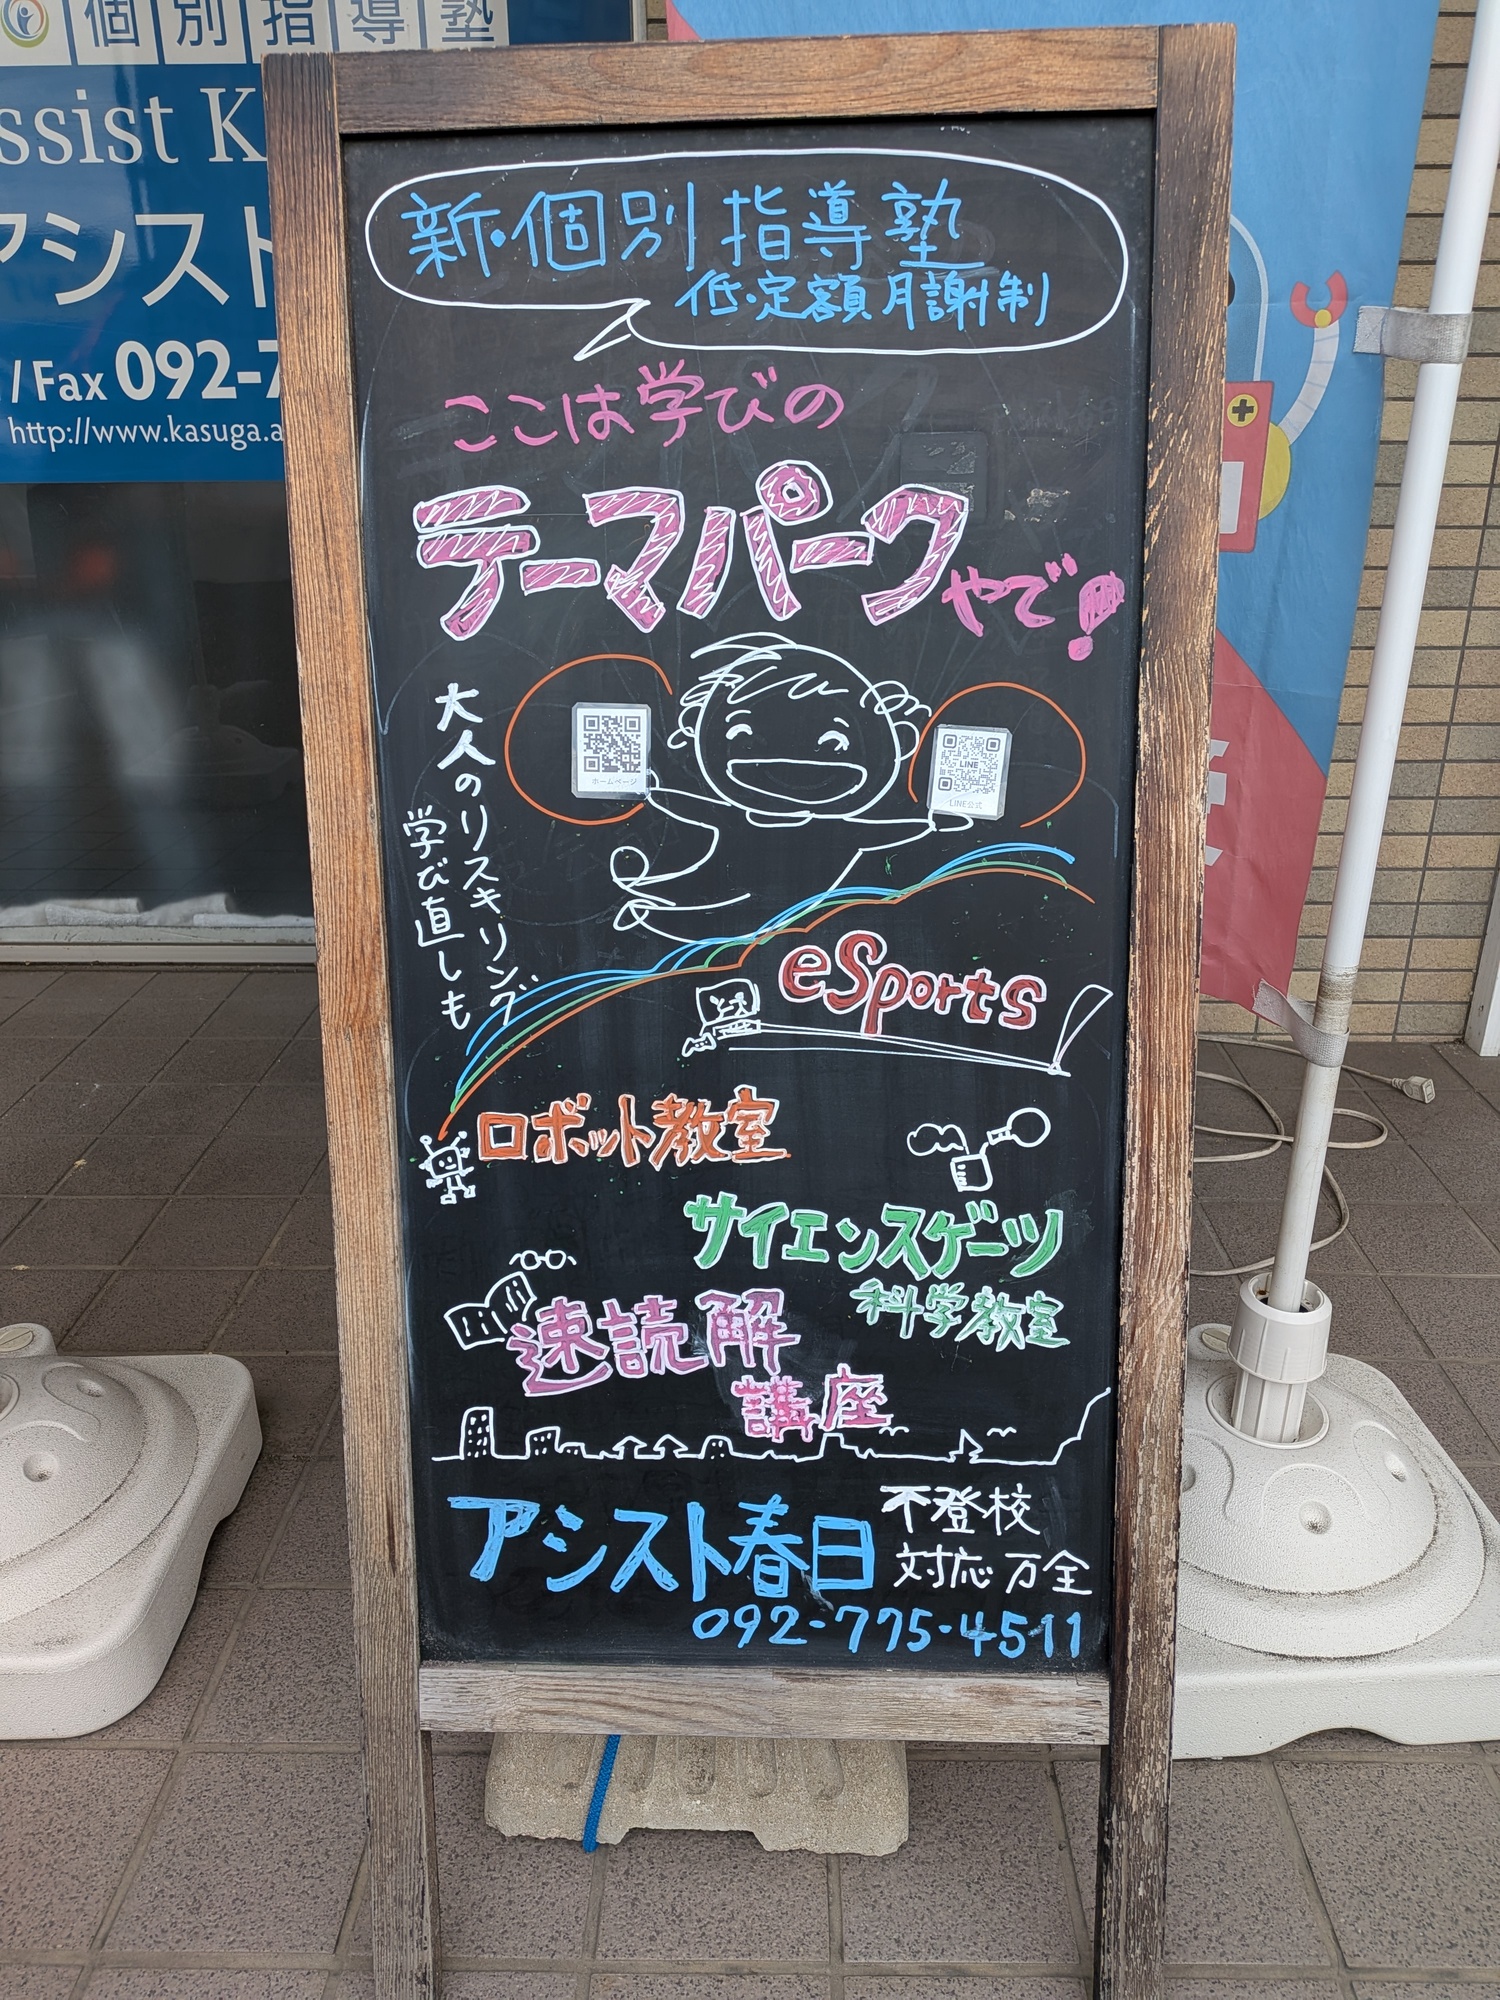 個別指導塾
ssist K
アシスト
/ Fax 092-7
http://www.kasuga.a
新・個別指導塾
低・定額月謝制
ここは学びの
テーマパークやで!
ホームページ
LINE
LINE公式
大人のリスキリング
学び直しも
eSports
ロボット教室
サイエンスゲーツ
科学教室
速読解
講座
アシスト春日
不登校
対応万全
092-775-4511